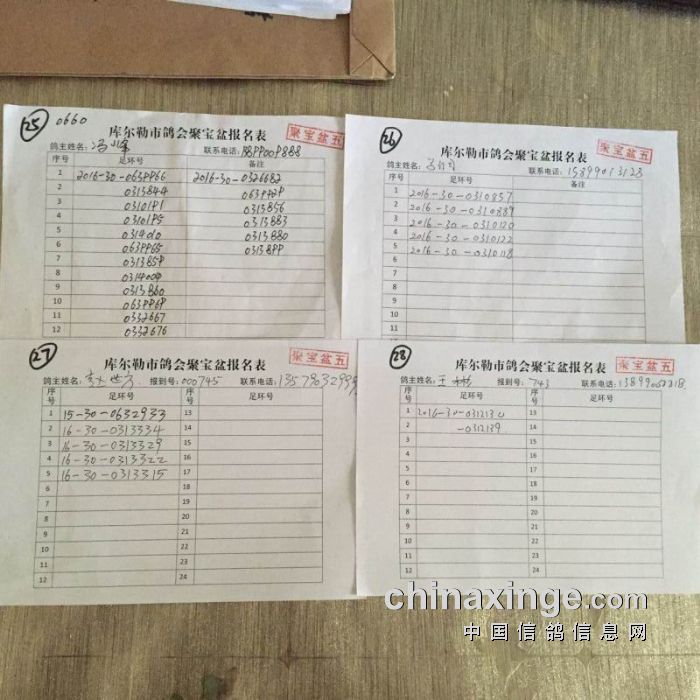 25 0660
库尔勒市鸽会聚宝盆报名表 聚宝盆五
鸽主姓名: 联系电话:
序号 足环号 备注
1 2016-30-063PP66 2016-30-0326682
2 0313844
3 03101P1 0313856
4 03101P5 0313883
5 0313880
6 063PP65 03138PP
7 031385P
8
9 0313860
10 063PP6P
11 0332667
12 0332676
26
库尔勒市鸽会聚宝盆报名表 聚宝盆五
鸽主姓名: 联系电话:
序号 足环号 备注
1 2016-30-0310857
2 2016-30-0310889
3 2016-30-0310120
4 2016-30-0310122
5 2016-30-0310118
6
7
8
9
10
11
12
27
库尔勒市鸽会聚宝盆报名表 聚宝盆五
鸽主姓名: 报到号:000745 联系电话:
序号 足环号 序号 足环号
1 15-30-0632933 13
2 16-30-0313334 14
3 16-30-0313329 15
4 16-30-0313322 16
5 16-30-0313315 17
6 18
7 19
8 20
9 21
10 22
11 23
12 24
28
库尔勒市鸽会聚宝盆报名表 聚宝盆五
鸽主姓名: 王 报到号: 743 联系电话:
序号 足环号 序号 足环号
1 2016-30-0312130 13
2 -0312139 14
3 15
4 16
5 17
6 18
7 19
8 20
9 21
10 22
11 23
12 24
chinaxinge.com
中国信鸽信息网